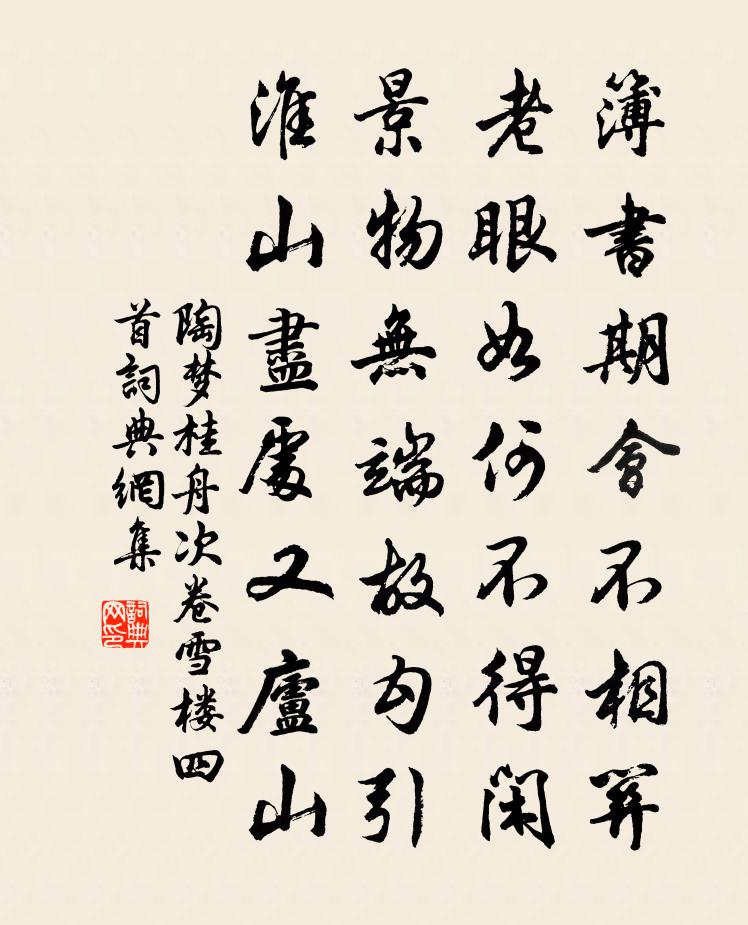 簿書期會不相關
老眼如何不得閑
景物無端故勾引
淮山盡處又廬山
陶梦桂舟次卷雪楼四
首詞典網集
詞典
网印